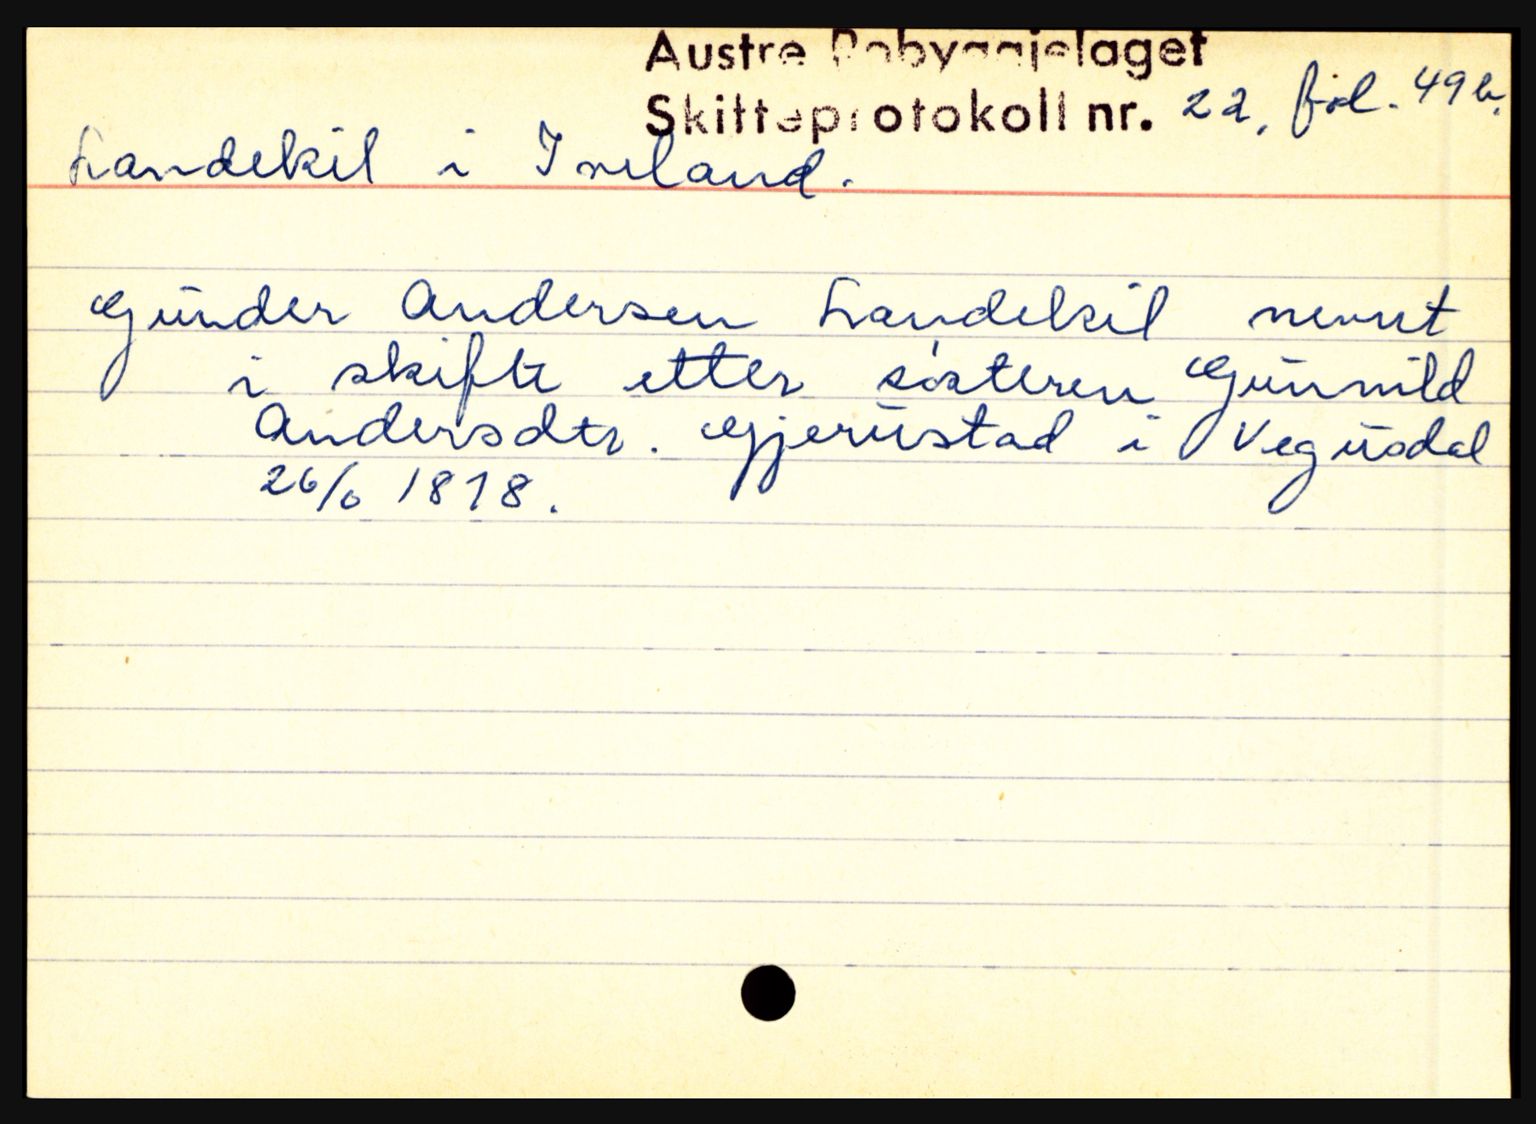 Austre Robyggjelaget
Skifteprotokoll nr. 22, fol. 49b.
Landekil i Iveland.
Gunder Andersen Landekil nevnt
i skifte etter søsteren Gunnild
Andersdtr. Gjerustad i Vegusdal
26/6 1818.